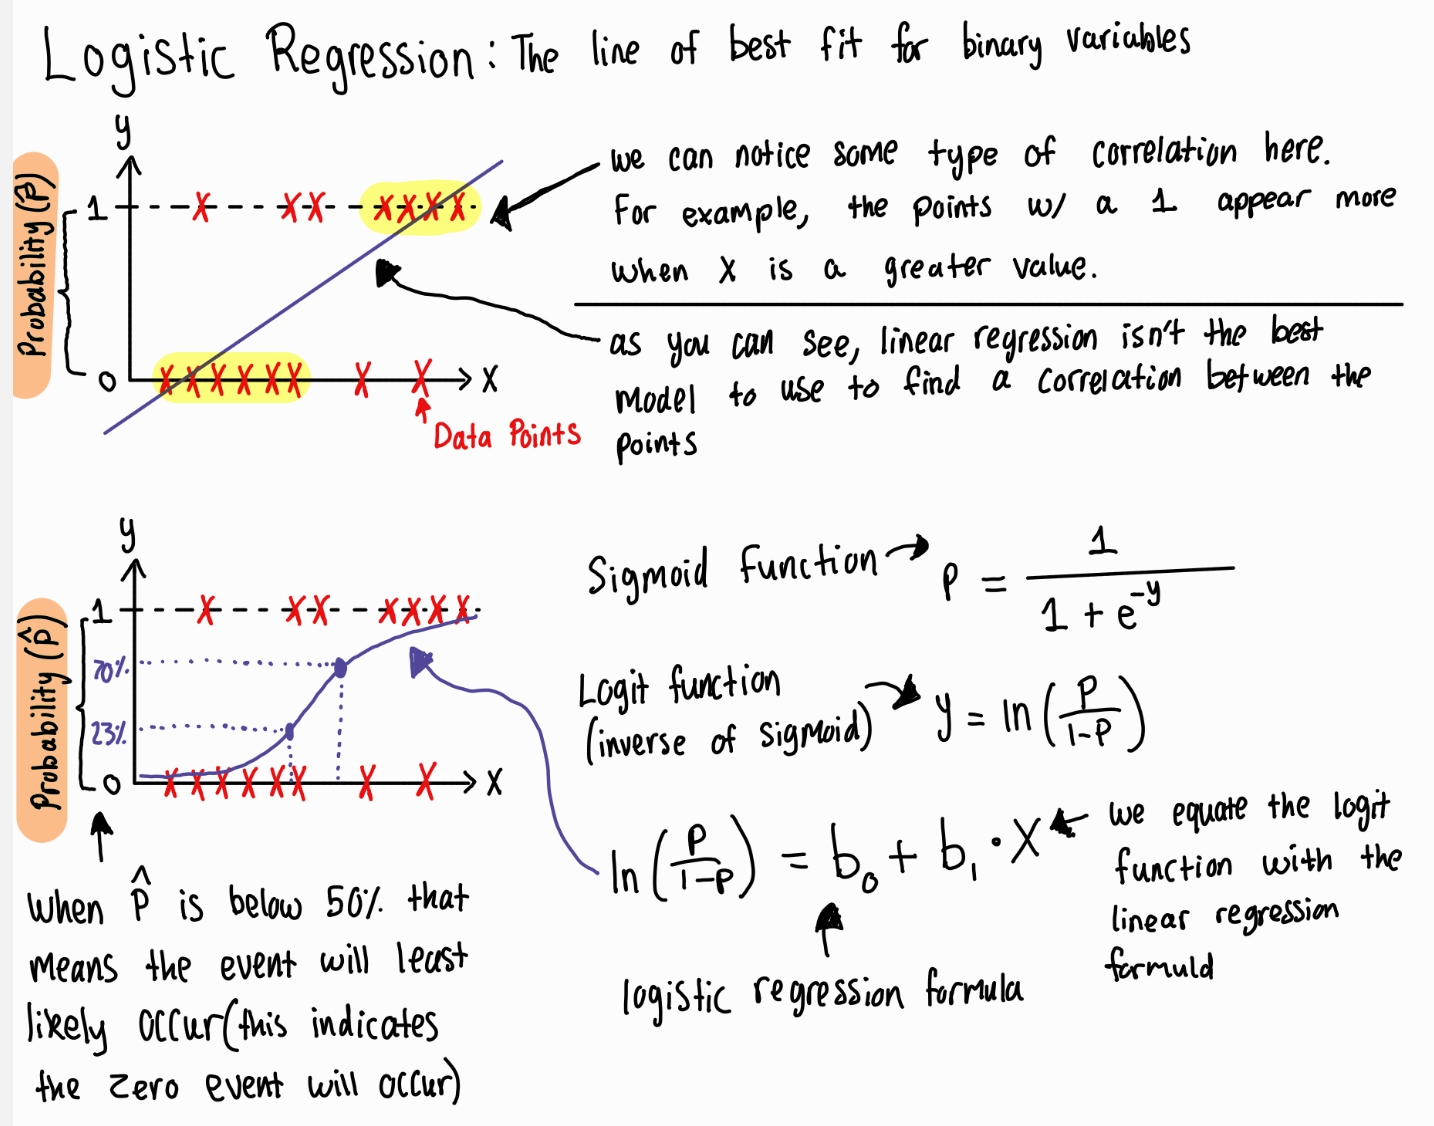 Logistic Regression: The line of best fit for binary variables
y
Probability (p̂)
1
0
X
Data Points
we can notice some type of correlation here.
For example, the points w/ a 1 appear more
when X is a greater value.
as you can see, linear regression isn't the best
model to use to find a correlation between the
points
y
Probability (p̂)
1
70%
23%
0
X
when p̂ is below 50% that
means the event will least
likely occur (this indicates
the zero event will occur)
Sigmoid function → P = 1 / (1 + e^-y)
Logit function
(inverse of sigmoid) → y = ln(P/(1-P))
ln(P/(1-P)) = b₀ + b₁ · X
logistic regression formula
we equate the logit
function with the
linear regression
formula